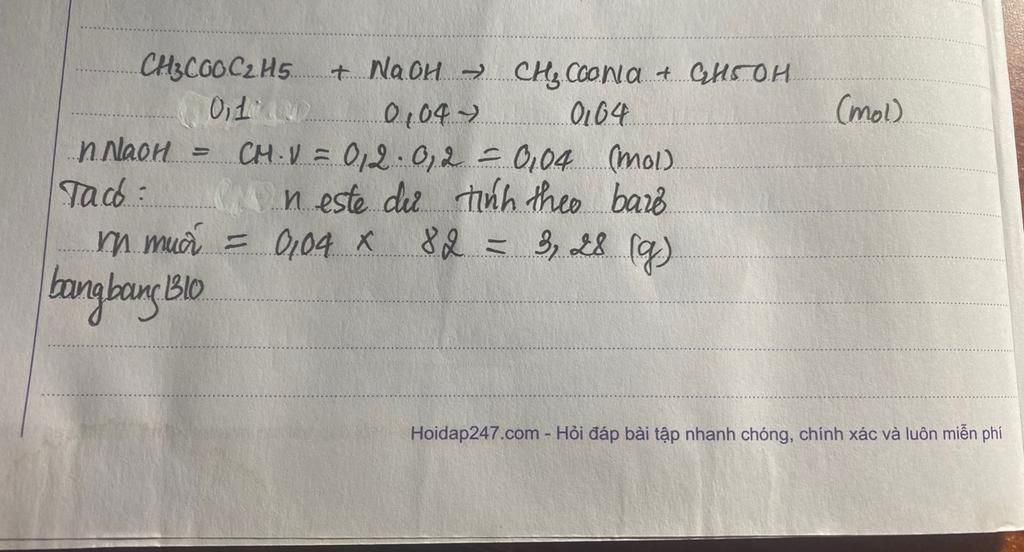 CH3COOC2H5 + NaOH → CH3COONa + C2H5OH
0,1 0,04 → 0,04 (mol)
n NaOH = CM.V = 0,2.0,2 = 0,04 (mol)
Ta có: n este dư tính theo bazơ
m muối = 0,04 x 82 = 3,28 (g)
bangbang1310
Hoidap247.com - Hỏi đáp bài tập nhanh chóng, chính xác và luôn miễn phí